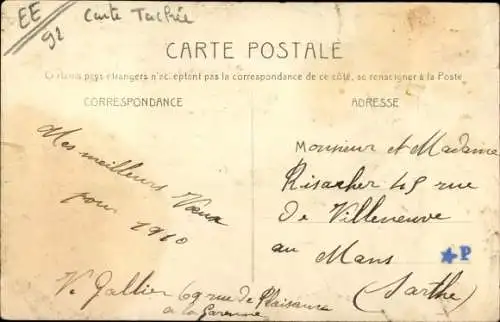 EE
92
Carte Tachée
CARTE POSTALE
Certains pays étrangers n'acceptent pas la correspondance de ce côté, se renseigner à la Poste
CORRESPONDANCE
ADRESSE
Mes meilleurs Vœux
pour 1910
V. Gallier 69 rue de Plaisance
a la Garenne
Monsieur et Madame
Risacher 49 rue
de Villeneuve
au Mans
(Sarthe)
★P